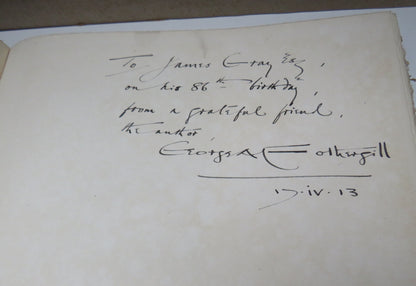 To James Gray Esq,
on his 86th birthday,
from a grateful friend,
the author,
George A Fothergill
17.iv.13